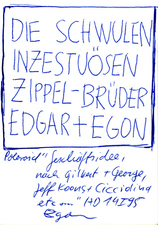 DIE SCHWULEN
INZESTUÖSEN
ZIPPEL-BRÜDER
EDGAR+EGON
Polaroid "Geschäftsidee,
nach Gilbert + George,
Jeff Koons + Cicciolina
etc m" HD 14 I 95
Egon